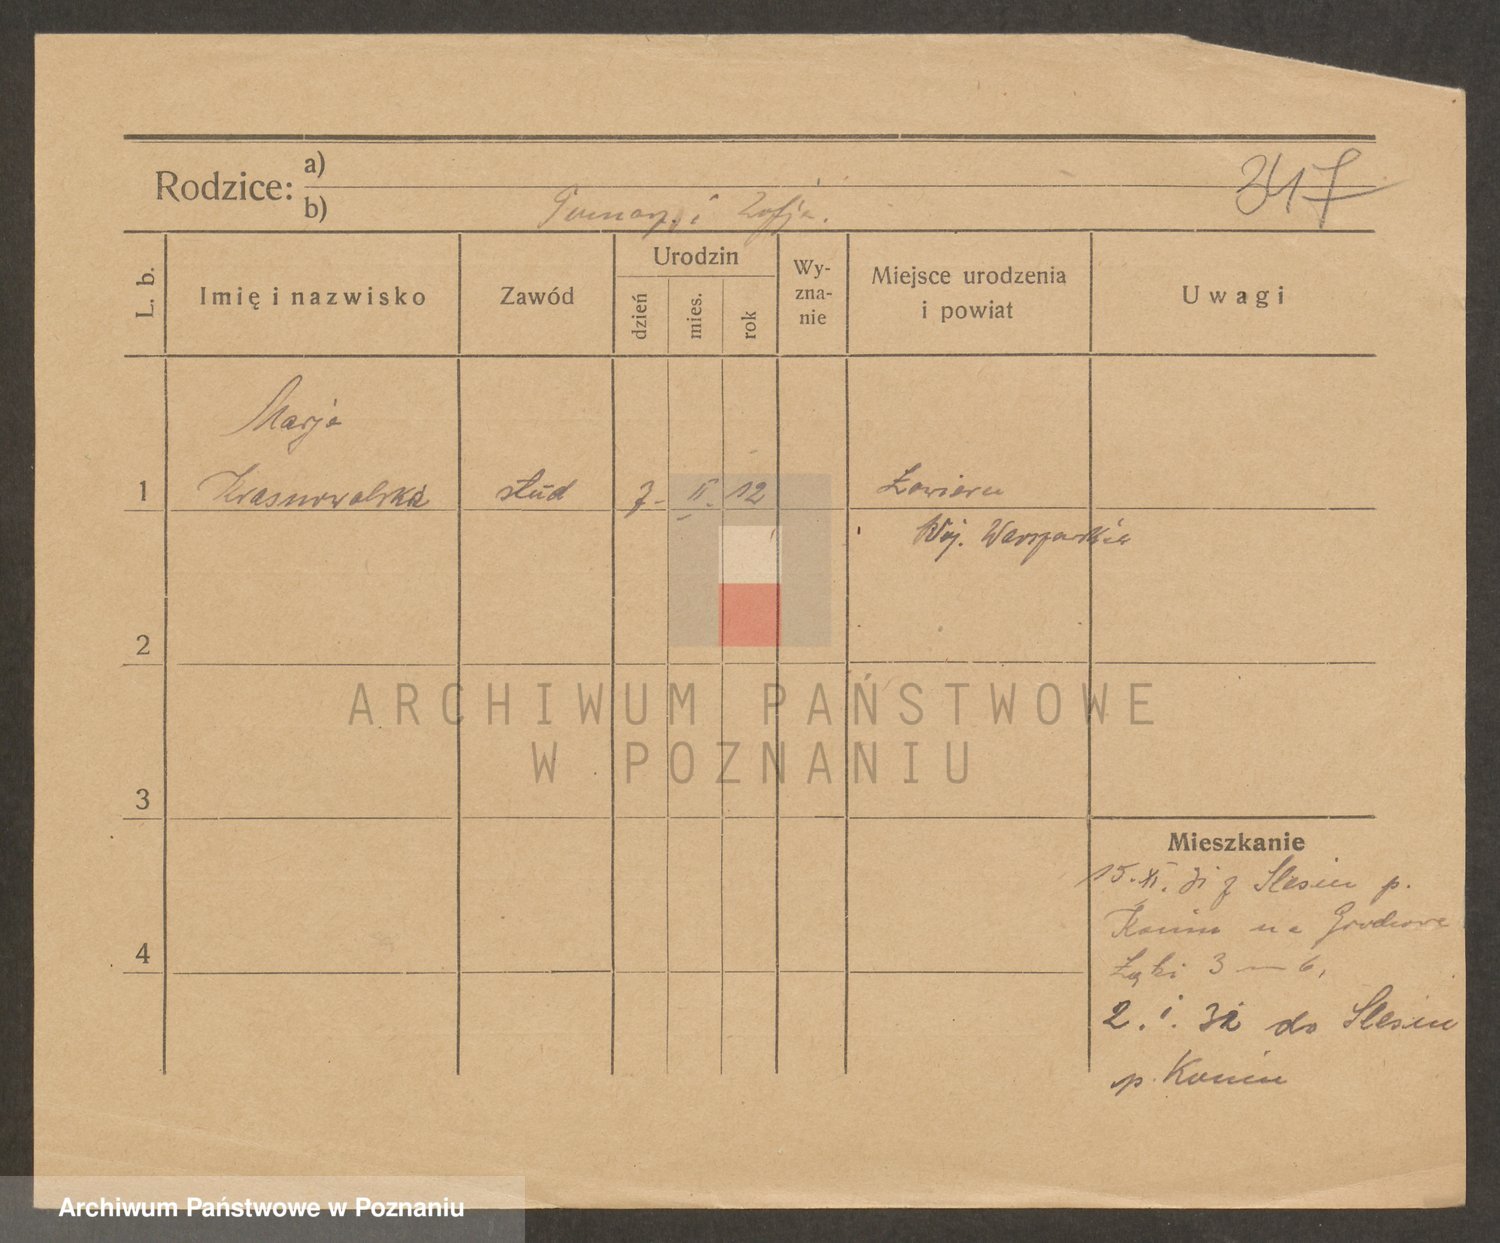 Rodzice: a)
b) i Zofja.
317
L. b.
Imię i nazwisko
Zawód
Urodzin
dzień
mies.
rok
Wy-
zna-
nie
Miejsce urodzenia
i powiat
Uwagi
Marja
1 stud 7. II. 12
Woj. Warszawskie
2
3
4
Mieszkanie
15. XI. 31 z Slesin p.
Konin na
Łąki 3 — 6.
2. I. 32 do Slesin
p. Konin
ARCHIWUM PAŃSTWOWE
W POZNANIU
Archiwum Państwowe w Poznaniu